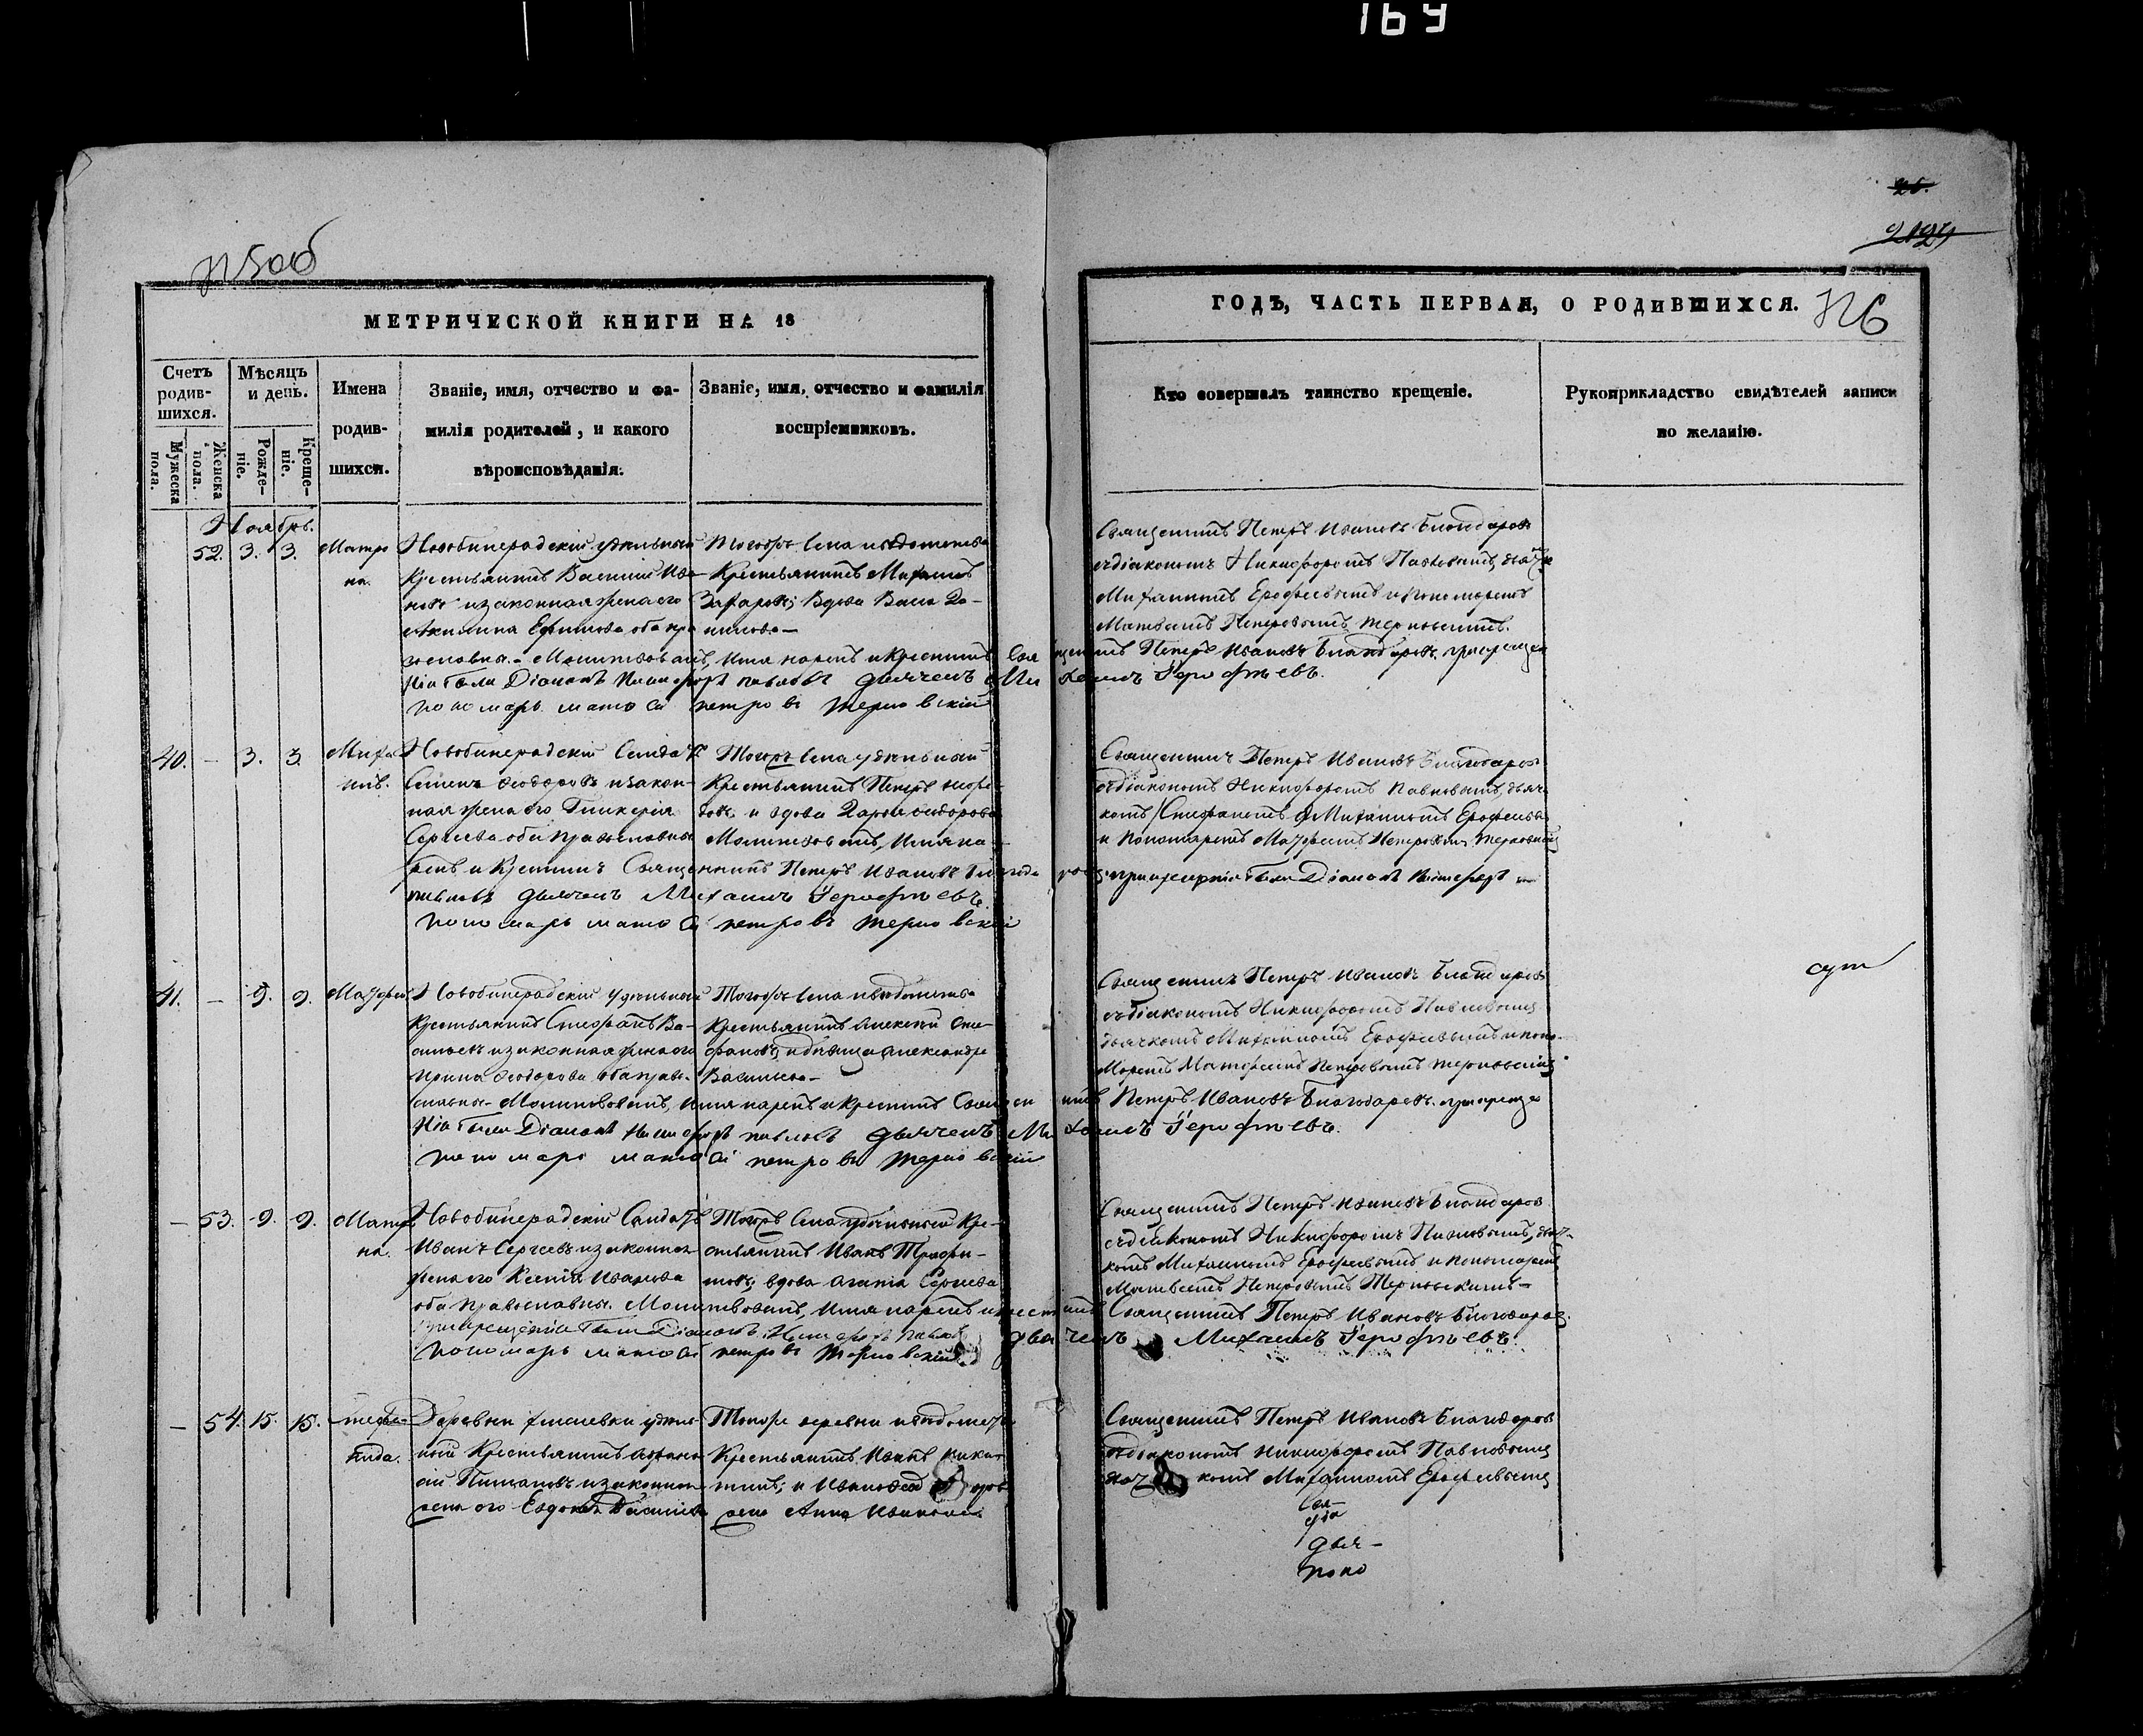 169
26.
2129
МЕТРИЧЕСКОЙ КНИГИ НА 18
ГОДЪ, ЧАСТЬ ПЕРВАЯ, О РОДИВШИХСЯ.
Счетъ родив-шихся.
Мужеска пола.
Женска пола.
Мѣсяцъ и день.
Рожде-ніе.
Креще-ніе.
Имена
родив-
шихся.
Званіе, имя, отчество и фа-
милія родителей, и какого
вѣроисповѣданія.
Званіе, имя, отчество и фамилія
воспріемниковъ.
Кто совершалъ таинство крещеніе.
Рукоприкладство свидѣтелей записи
по желанію.
Ноябрь.
52. 3. 3. Матро
на.
Новобинерадскій удѣльный
Крестьянинъ Василій Ива-
новъ и законная жена его
Акилина Ефимова оба пра
вославны. - Молитвовалъ, имя нарекъ и Крестилъ Священникъ Петръ Ивановъ Благодаровъ. при креще
ніи были Діаконъ Никифоръ павловъ дьячекъ Михаилъ Ерофѣевъ.
пономарь матфѣй петровъ терновскій
Тогожъ села и вѣдомства
Крестьянинъ Михаилъ
Захаровъ; Вдова Васса Да-
нилова -
Священникъ Петръ Ивановъ Благодаровъ
съ діакономъ Никифоромъ Павловымъ, дьяч
Михаиломъ Ерофеевымъ и пономаремъ
Матвеемъ Петровымъ Терновскимъ.
40. - 3. 3. Михаи
илъ.
Новобинерадскій Солдатъ
Семенъ Феодоровъ и закон-
ная жена его Гликерія
Сергеева оба православны
Молитвовалъ, Имя на
рекъ и Крестилъ Священникъ Петръ Ивановъ Благодаровъ при крещеніи были Діаконъ Никифоръ
павловъ дьячекъ Михаилъ Ерофѣевъ.
пономарь матфѣй петровъ терновскій
Тогожъ села удѣльный
Крестьянинъ Петръ
и вдова Дарья Феодорова
Священникъ Петръ Ивановъ Благодаровъ
съ діакономъ Никифоромъ Павловымъ, дьяч
комъ Михаиломъ Ерофеевы
и Пономаремъ Матфеемъ Петровымъ Терновским
41. - 9. 9. Матфей
Новобинерадскій удѣльный
Крестьянинъ Стефанъ Ва-
сильевъ и законная жена его
Ирина Феодорова оба право-
славны - Молитвовалъ, имя нарекъ и крестилъ Священникъ Петръ Ивановъ Благодаровъ. при креще
ніи были Діаконъ Никифоръ павловъ дьячекъ Михаилъ Ерофѣевъ.
пономарь матфѣй петровъ терновскій
Тогожъ села и вѣдомства
Крестьянинъ Алексей Сте-
фановъ, и дѣвица Александра
Васильева -
Священникъ Петръ Ивановъ Благодаровъ
съ діакономъ Никифоромъ Павловымъ
дьячкомъ Михаиломъ Ерофеевымъ и поно-
маремъ Матфеемъ Петровымъ Терновским
- 53. 9. 9. Матре
на.
Новобинерадскій Солдатъ
Иванъ Сергеевъ и законная
жена его Ксенія Иванова
оба православны. Молитвовалъ, Имя нарекъ и крестилъ Священникъ Петръ Ивановъ Благодаров.
при крещеніи были Діаконъ Никифоръ павловъ дьячекъ Михаилъ Ерофѣевъ.
пономарь матфѣй петровъ терновскій
Тогожъ села удѣльный Кре-
стьянинъ Иванъ Трофи-
мовъ; вдова Агапія Сергеева
Священникъ Петръ Ивановъ Благодаров
съ діакономъ Никифоромъ Павловымъ, дьяч-
комъ Михаиломъ Ерофеевымъ и пономаремъ
Матвеемъ Петровымъ Терновскимъ -
- 54. 15. 15.
нида.
Деревни удѣль-
ный Крестьянинъ Афана
сій и законная
жена его Евдокія Васильева
Тойже деревни и вѣдомства
Крестьянинъ Иванъ Ники-
тинъ; и
жена Анна Иванова
Священникъ Петръ Ивановъ Благодаров
съ діакономъ Никифоромъ Павловымъ
комъ Михаиломъ Ерофеевымъ
Свя-
дьяч-
поно